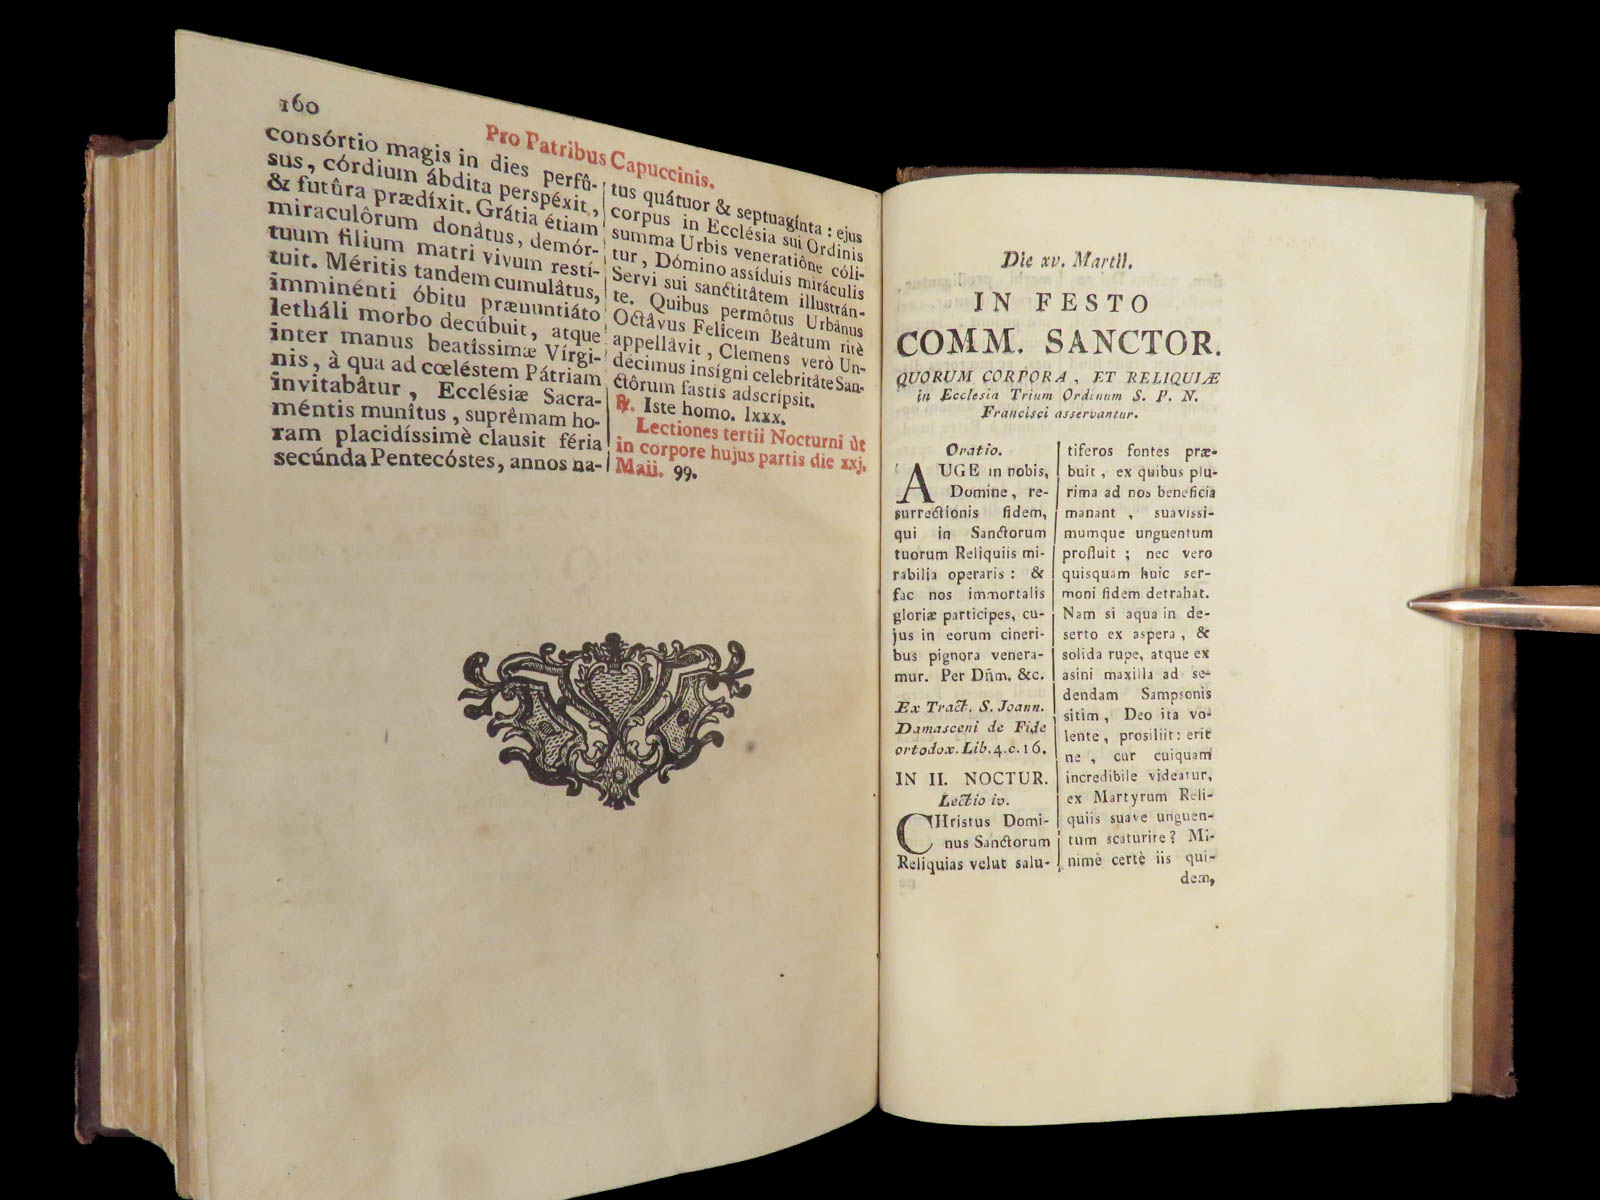 160
Pro Patribus Capuccinis.
consórtio magis in dies perfû-
sus, córdium ábdita perspéxit,
& futûra prædíxit. Grátia étiam
miraculôrum donâtus, demór-
tuum filium matri vivum restí-
tuit. Méritis tandem cumulâtus,
imminénti óbitu prænuntiáto
letháli morbo decúbuit, atque
inter manus beatíssimæ Vírgi-
nis, à qua ad cœléstem Pátriam
invitabâtur, Ecclésiæ Sacra-
méntis munîtus, suprêmam ho-
ram placidíssimè clausit féria
secúnda Pentecóstes, annos na-
tus quátuor & septuagínta: ejus
corpus in Ecclésia sui Ordinis
summa Urbis veneratiône cóli-
tur, Dómino assíduis miráculis
Servi sui sanctitâtem illustrán-
te. Quibus permôtus Urbânus
Octâvus Felîcem Beâtum ritè
appellâvit, Clemens verò Un-
décimus insígni celebritâte San-
ctôrum fastis adscrípsit.
℟. Iste homo. lxxx.
Lectiones tertii Nocturni ùt
in corpore hujus partis die xxj.
Maii. 99.
Die xv. Martii.
IN FESTO
COMM. SANCTOR.
QUORUM CORPORA, ET RELIQUIÆ
in Ecclesia Trium Ordinum S. P. N.
Francisci asservantur.
Oratio.
AUGE in nobis,
Domine, re-
surrectionis fidem,
qui in Sanctorum
tuorum Reliquiis mi-
rabilia operaris: &
fac nos immortalis
gloriæ participes, cu-
jus in eorum cineri-
bus pignora venera-
mur. Per Dñm. &c.
Ex Tract. S. Joann.
Damasceni de Fide
ortodox. Lib. 4. c. 16.
IN II. NOCTUR.
Lectio iv.
CHristus Domi-
nus Sanctorum
Reliquias velut salu-
tiferos fontes præ-
buit, ex quibus plu-
rima ad nos beneficia
manant, suavissi-
mumque unguentum
profluit; nec vero
quisquam huic ser-
moni fidem detrahat.
Nam si aqua in de-
serto ex aspera, &
solida rupe, atque ex
asini maxilla ad se-
dendam Sampsonis
sitim, Deo ita vo-
lente, prosiliit: erit
ne, cur cuiquam
incredibile videatur,
ex Martyrum Reli-
quiis suave unguen-
tum scaturire? Mi-
nimè certè iis qui-
dem,